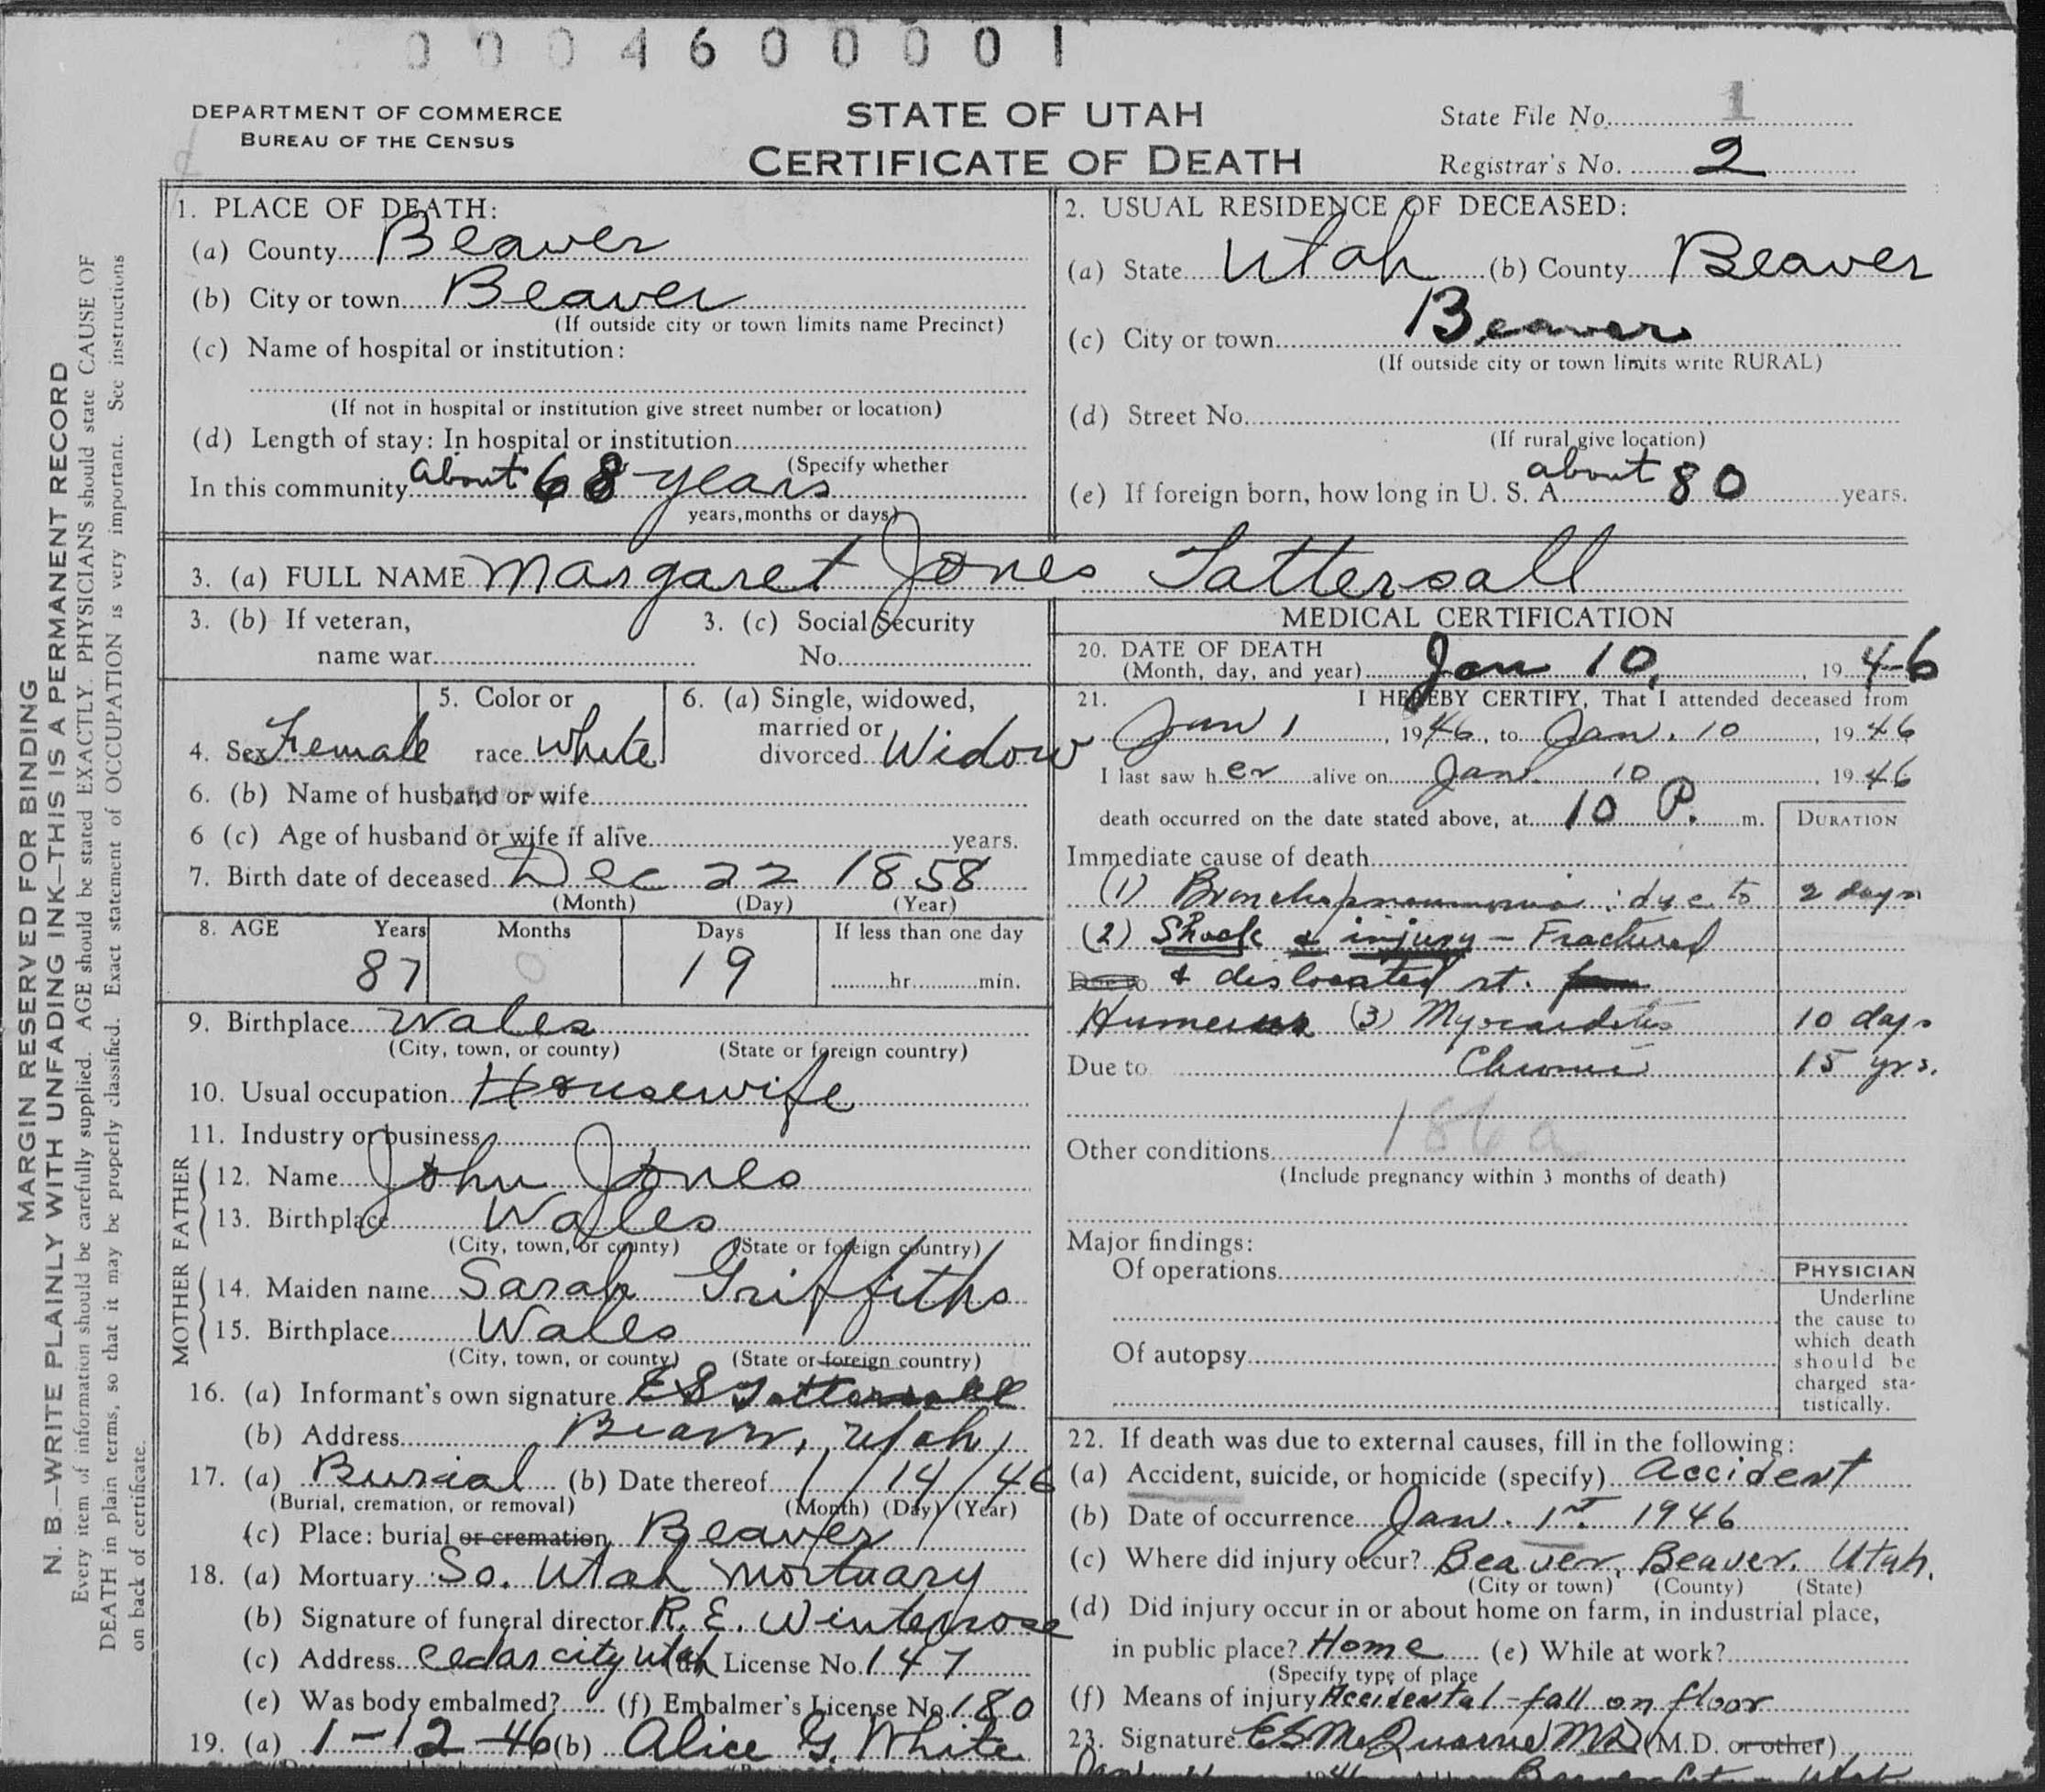 000460001
DEPARTMENT OF COMMERCE
BUREAU OF THE CENSUS
STATE OF UTAH
CERTIFICATE OF DEATH
State File No. 1
Registrar's No. 2
MARGIN RESERVED FOR BINDING
N. B.—WRITE PLAINLY WITH UNFADING INK—THIS IS A PERMANENT RECORD
Every item of information should be carefully supplied. AGE should be stated EXACTLY. PHYSICIANS should state CAUSE OF
DEATH in plain terms, so that it may be properly classified. Exact statement of OCCUPATION is very important. See instructions
on back of certificate.
1. PLACE OF DEATH:
(a) County Beaver
(b) City or town Beaver
(If outside city or town limits name Precinct)
(c) Name of hospital or institution:
(If not in hospital or institution give street number or location)
(d) Length of stay: In hospital or institution
(Specify whether
In this community about 68 years
years, months or days)
2. USUAL RESIDENCE OF DECEASED:
(a) State Utah (b) County Beaver
(c) City or town Beaver
(If outside city or town limits write RURAL)
(d) Street No.
(If rural give location)
(e) If foreign born, how long in U. S. A. about 80 years.
3. (a) FULL NAME Margaret Jones Tattersall
3. (b) If veteran,
name war
3. (c) Social Security
No.
4. Sex Female
5. Color or
race White
6. (a) Single, widowed,
married or
divorced Widow
6. (b) Name of husband or wife
6 (c) Age of husband or wife if alive years.
7. Birth date of deceased Dec 22 1858
(Month) (Day) (Year)
8. AGE Years Months Days If less than one day
87 0 19 hr. min.
9. Birthplace Wales
(City, town, or county) (State or foreign country)
10. Usual occupation Housewife
11. Industry or business
FATHER
12. Name John Jones
13. Birthplace Wales
(City, town, or county) (State or foreign country)
MOTHER
14. Maiden name Sarah Griffiths
15. Birthplace Wales
(City, town, or county) (State or foreign country)
16. (a) Informant's own signature E S Tattersall
(b) Address Beaver, Utah
17. (a) Burial (b) Date thereof 1/14/46
(Burial, cremation, or removal) (Month) (Day) (Year)
(c) Place: burial or cremation Beaver
18. (a) Mortuary So. Utah Mortuary
(b) Signature of funeral director R. E. Winterrose
(c) Address Cedar City Utah License No. 147
(e) Was body embalmed? (f) Embalmer's License No. 180
19. (a) 1-12-46 (b) Alice G. White
MEDICAL CERTIFICATION
20. DATE OF DEATH
(Month, day, and year) Jan 10, 1946
21. I HEREBY CERTIFY, That I attended deceased from
Jan 1, 1946, to Jan. 10, 1946
I last saw her alive on Jan. 10, 1946
death occurred on the date stated above, at 10 P. m.
DURATION
Immediate cause of death
(1) Bronchopneumonia : due to 2 days
(2) Shock & injury - Fractured
Due to & dislocated rt.
Humerus (3) Myocarditis 10 days
Due to Chronic 15 yrs.
186a
Other conditions
(Include pregnancy within 3 months of death)
Major findings:
Of operations
Of autopsy
PHYSICIAN
Underline
the cause to
which death
should be
charged sta-
tistically.
22. If death was due to external causes, fill in the following:
(a) Accident, suicide, or homicide (specify) Accident
(b) Date of occurrence Jan. 1st 1946
(c) Where did injury occur? Beaver, Beaver, Utah.
(City or town) (County) (State)
(d) Did injury occur in or about home on farm, in industrial place,
in public place? Home (e) While at work?
(Specify type of place
(f) Means of injury Accidental - fall on floor
23. Signature E S McQuarrie MD (M.D. or other)